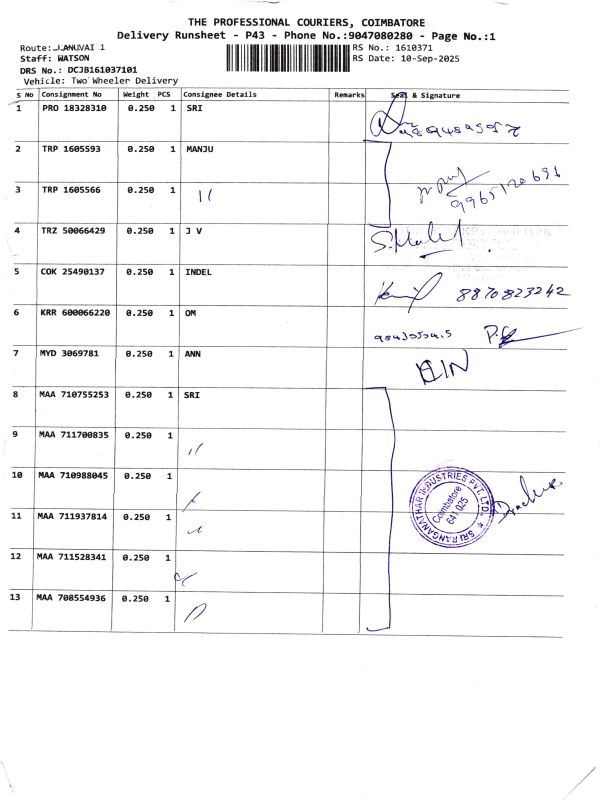 THE PROFESSIONAL COURIERS, COIMBATORE
Delivery Runsheet - P43 - Phone No.:9047080280 - Page No.:1
Route: J.ANUVAI 1
RS No.: 1610371
Staff: WATSON
RS Date: 10-Sep-2025
DRS No.: DCJB161037101
Vehicle: Two Wheeler Delivery
S No Consignment No Weight PCS Consignee Details Remarks Seal & Signature
1 PRO 18328310 0.250 1 SRI
2 TRP 1605593 0.250 1 MANJU
3 TRP 1605566 0.250 1 11
9965120696
4 TRZ 50066429 0.250 1 J V
5 COK 25490137 0.250 1 INDEL
8870823242
6 KRR 600066220 0.250 1 OM
7 MYD 3069781 0.250 1 ANN
8 MAA 710755253 0.250 1 SRI
9 MAA 711700835 0.250 1 11
10 MAA 710988045 0.250 1
SRI RANGANATHAR INDUSTRIES PVT. LTD.
Coimbatore
641 025
11 MAA 711937814 0.250 1
12 MAA 711528341 0.250 1
13 MAA 708554936 0.250 1